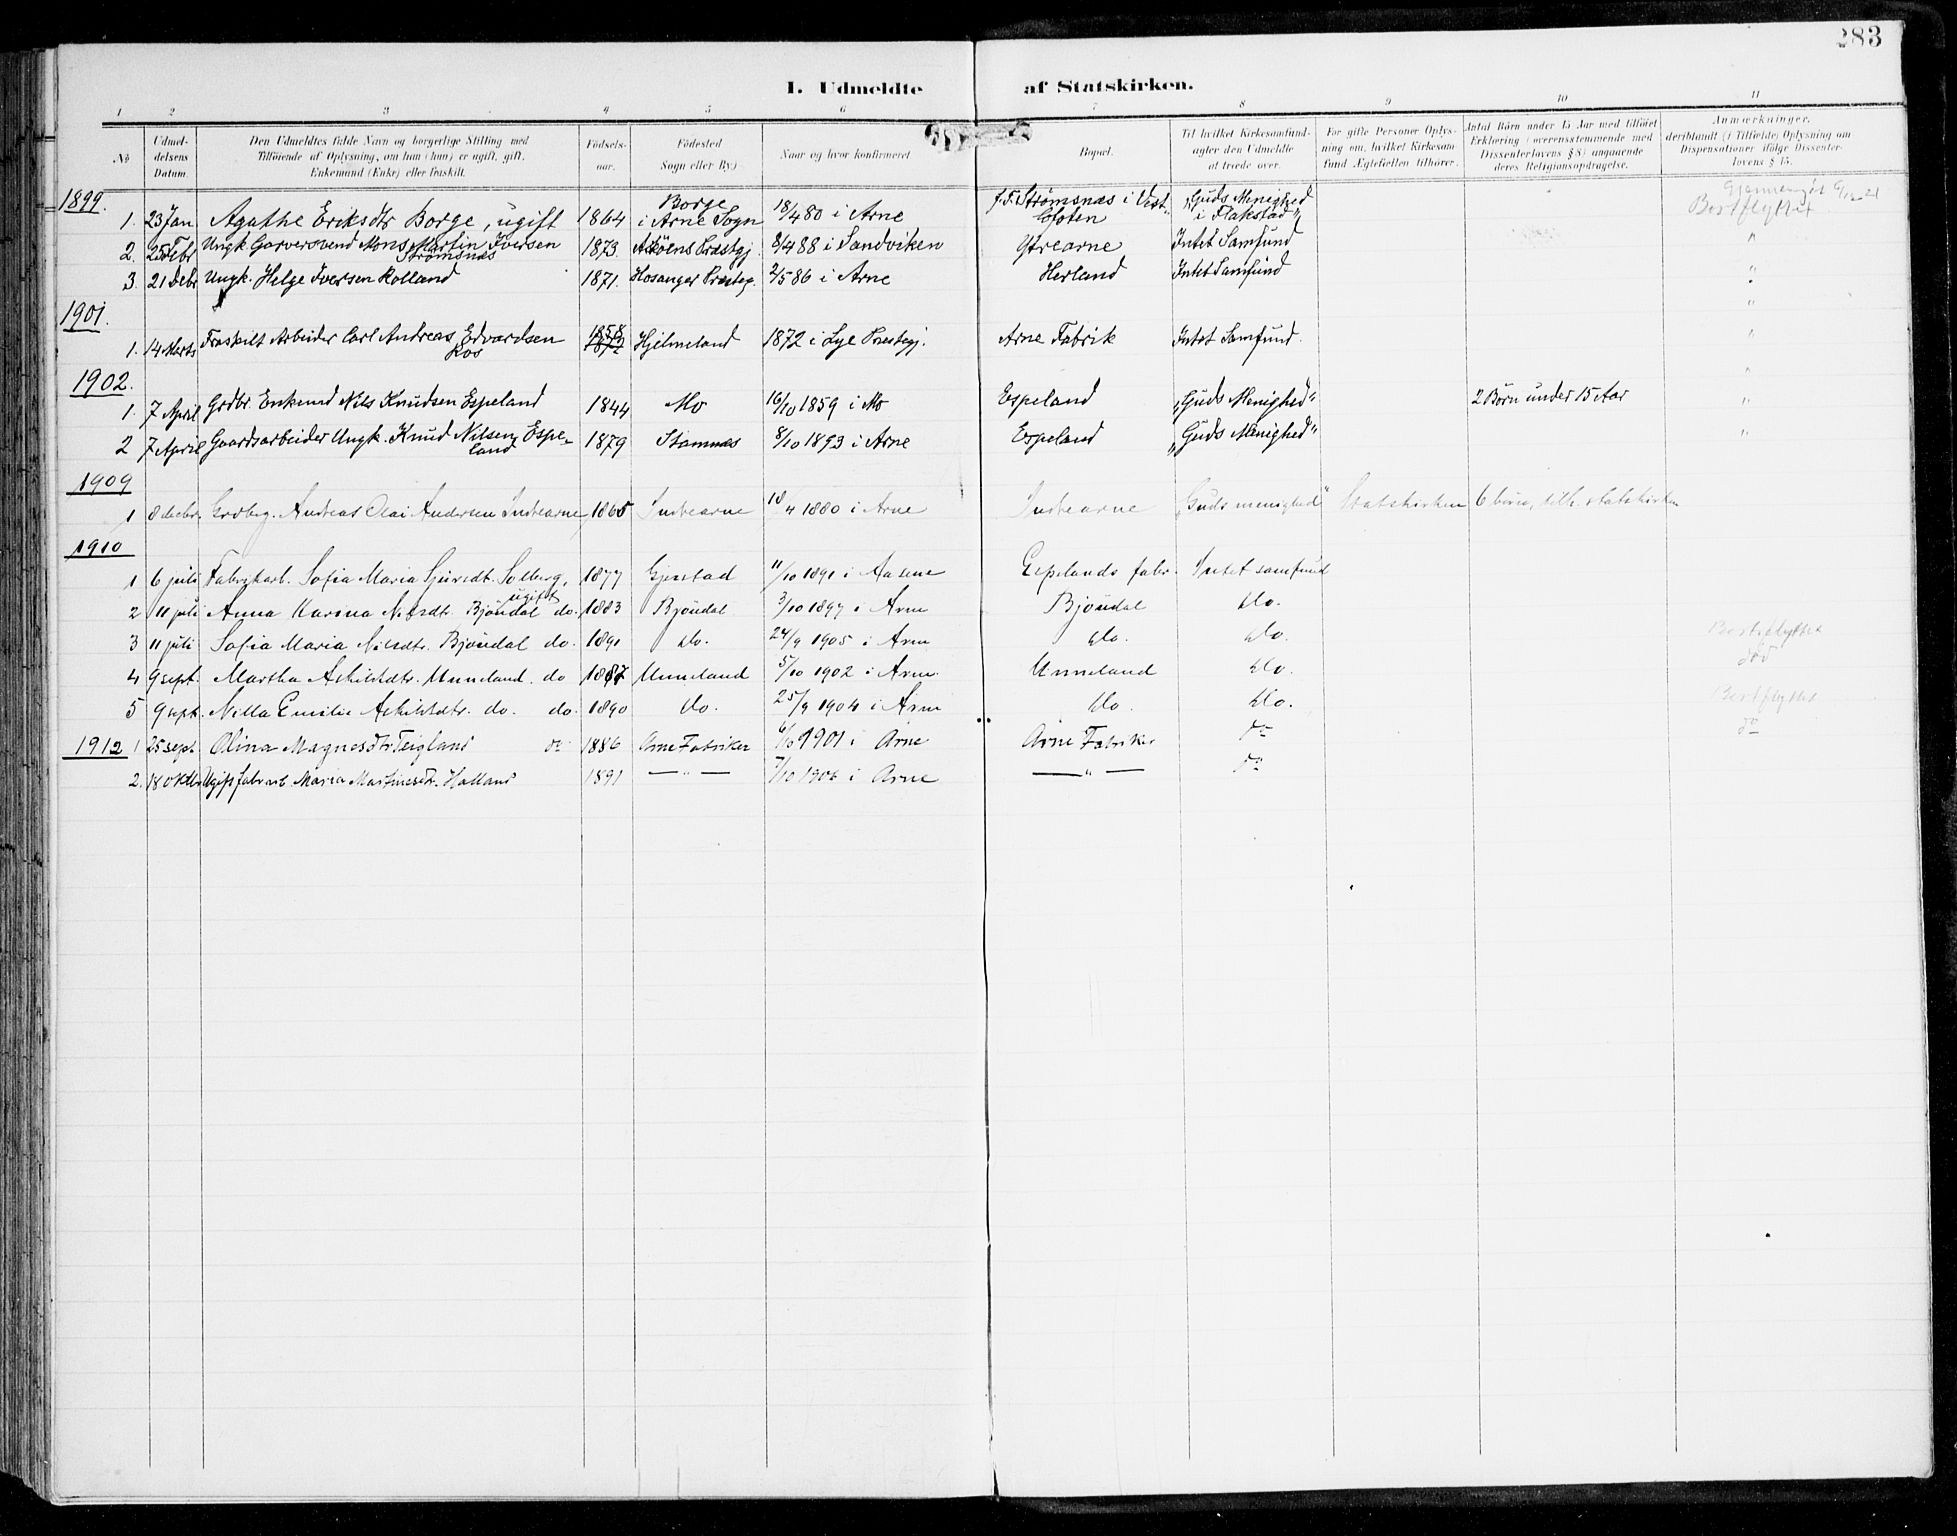 283
I. Udmeldte af Statskirken.
1 2 3 4 5 6 7 8 9 10 11
No
Udmeldelsens Datum.
Den Udmeldtes fulde Navn og borgerlige Stilling med
Tilföiende af Oplysning, om han (hun) er ugift, gift,
Enkemand (Enke) eller fraskilt.
Födselsaar.
Födested
Sogn eller By)
Naar og hvor konfirmeret
Bopæl.
Til hvilket Kirkesamfund
agter den Udmeldte
at træde over.
For gifte Personer Oplysning om, hvilket Kirkesamfund Ægtefællen tilhörer.
Antal Börn under 15 Aar med tilföiet
Erklæring (overensstemmende med
Dissenterlovens § 8) angaaende
deres Religionsopdragelse.
Anmærkninger,
deriblandt (i Tilfælde) Oplysning om
Dispensationer ifölge Dissenterlovens § 15.
1899.
1. 23 Jan Agathe Eriksdtr Borge, ugift 1864 Borge i Arne Sogn 18/4 80 i Arne Strömsnæs i Vest Lofoten "Guds Menighed i Flakstad" Bortflyttet
2. 25 Febr Ungk Garversvend Mons Martin Iversen Strömsnæs 1873. Asköens Præstgj. 8/4 88 i Sandviken Ytrearne Intet Samfund "
3. 21 Debr Ungk. Helge Iversen Rolland 1871. Hosanger Præsteg. 2/5 86 i Arne Herland Intet Samfund "
1901.
1. 14 Marts Fraskilt Arbeider Carl Andreas Edvardsen Ros 1858 Hjelmeland 1872 i Lye Præstegj. Arne Fabrik Intet Samfund. "
1902.
1. 7 April Grdbr. Enkemd Nils Knudsen Espeland 1844 Mo 16/10 1859 i Mo Espeland "Guds Menighed" 2 Börn under 15 Aar "
2 7 April Gaardsarbeider Ungk. Knud Nilsen Espeland 1879 Stamnæs 8/10 1893 i Arne Espeland "Guds Menighed" "
1909
1 8 decbr. Grdbrg. Andreas Olai Andersen Indrearne 1865 Indrearne 18/4 1880 i Arne Indrearne "Guds menighed" Statskirken 6 börn, tilh. statskirken
1910
1 6 juli Fabrikarb. Sofia Maria Sjursdt. Solberg, ugift 1877 Gjerstad 11/10 1891 i Aasene Espelands fabr. Intet samfund
2 11 juli Anna Karina Nilsdtr. Björndal do. 1883 Björndal 3/10 1897 i Arne Björndal do.
3 11 juli Sofia Maria Nilsdtr. Björndal do. 1891 do. 24/9 1905 i Arne do. do. Bortflyttet
4 9 sept. Martha Askildsdtr. Unneland. do 1887 Unneland 5/10 1902 i Arne. Unneland do. död
5 9 sept. Nilla Emilie Askildsdtr. do. do. 1890 do. 25/9 1904 i Arne do. do. Bortflyttet
1912 1 25 sept Olina Magnesdtr Teigland do 1886 Arne Fabriker 6/10 1901 i Arne Arne Fabriker do do
2. 18 oktbr Ugift fabrarb. Maria Martinesdtr. Halland 1891 — " — 7/10 1906 i Arne — " — do